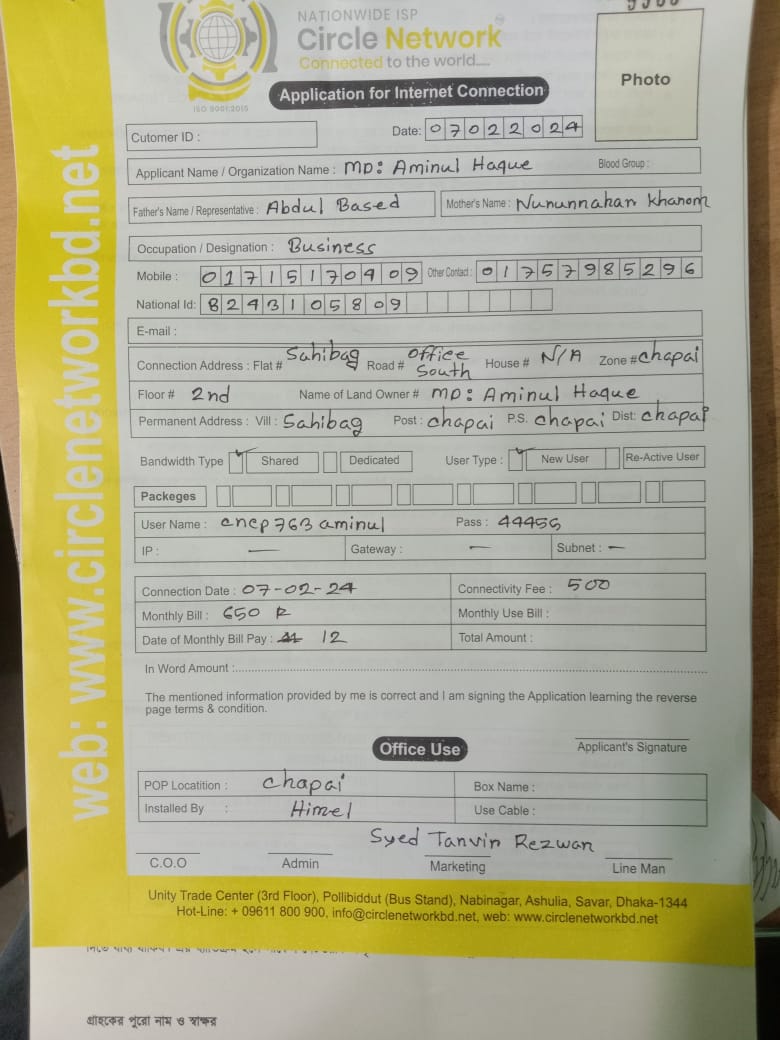 NATIONWIDE ISP
Circle Network
Connected to the world.....
ISO 9001:2015
Application for Internet Connection
Photo
Cutomer ID :
Date: 07022024
Applicant Name / Organization Name : MD: Aminul Haque Blood Group :
Father's Name / Representative : Abdul Based Mother's Name : Nununnahar Khanom
Occupation / Designation : Business
Mobile : 01715170409 Other Contact : 01757985296
National Id: 8243105809
E-mail :
Connection Address : Flat # Sahibag Road # office South House # N/A Zone # chapai
Floor # 2nd Name of Land Owner # MD: Aminul Haque
Permanent Address : Vill : Sahibag Post : chapai P.S. chapai Dist: chapai
Bandwidth Type Shared Dedicated User Type : New User Re-Active User
Packeges
User Name : cncp763 aminul Pass : 44455
IP : — Gateway : — Subnet : —
Connection Date : 07-02-24 Connectivity Fee : 500
Monthly Bill : 650 R Monthly Use Bill :
Date of Monthly Bill Pay : 12 Total Amount :
In Word Amount :
The mentioned information provided by me is correct and I am signing the Application learning the reverse
page terms & condition.
Office Use
Applicant's Signature
POP Locatition : chapai Box Name :
Installed By : Himel Use Cable :
Syed Tanvin Rezwan
C.O.O Admin Marketing Line Man
Unity Trade Center (3rd Floor), Pollibiddut (Bus Stand), Nabinagar, Ashulia, Savar, Dhaka-1344
Hot-Line: + 09611 800 900, info@circlenetworkbd.net, web: www.circlenetworkbd.net
web: www.circlenetworkbd.net
গ্রাহকের পুরো নাম ও স্বাক্ষর